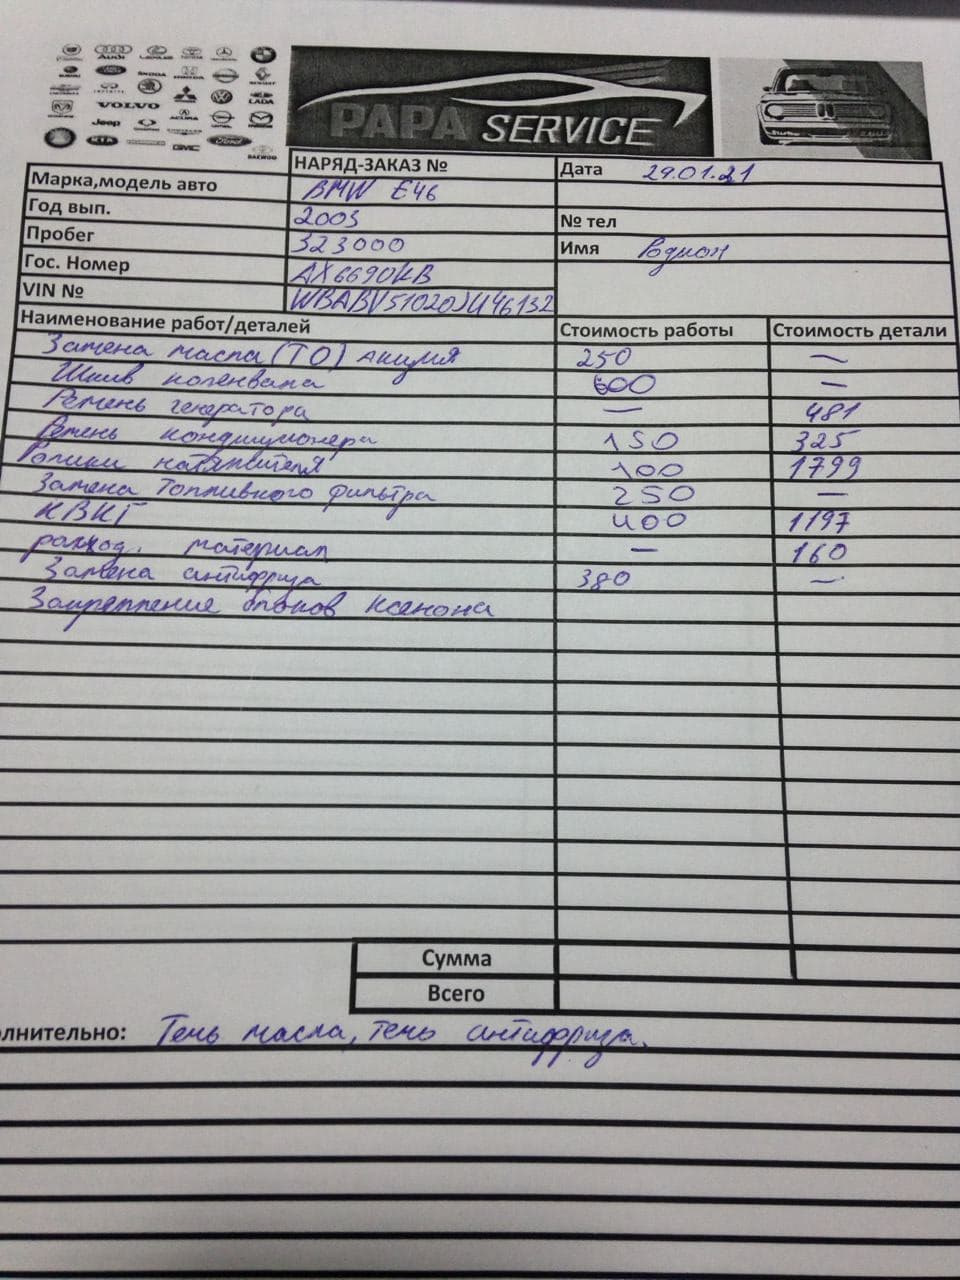 Audi
LEXUS
SKODA
HONDA
INFINITI
LADA
VOLVO
Jeep
ACURA
KIA
GMC
Ford
DAEWOO
PAPA SERVICE
НАРЯД-ЗАКАЗ № Дата 29.01.21
Марка,модель авто BMW E46
Год вып. 2003 № тел
Пробег 323000 Имя Родион
Гос. Номер AX6690KB
VIN № WBABV51020JU46132
Наименование работ/деталей Стоимость работы Стоимость детали
Замена масла (ТО) Акция 250 —
Шкив коленвала 600 —
Ремень генератора — 481
Ремень кондиционера 150 325
Ролики натяжителя 100 1799
Замена Топливного фильтра 250 —
КВКГ 400 1197
расход. материал — 160
Замена антифриза 380 —
Закрепление блоков ксенона
Сумма
Всего
олнительно: Течь масла, течь антифриза.